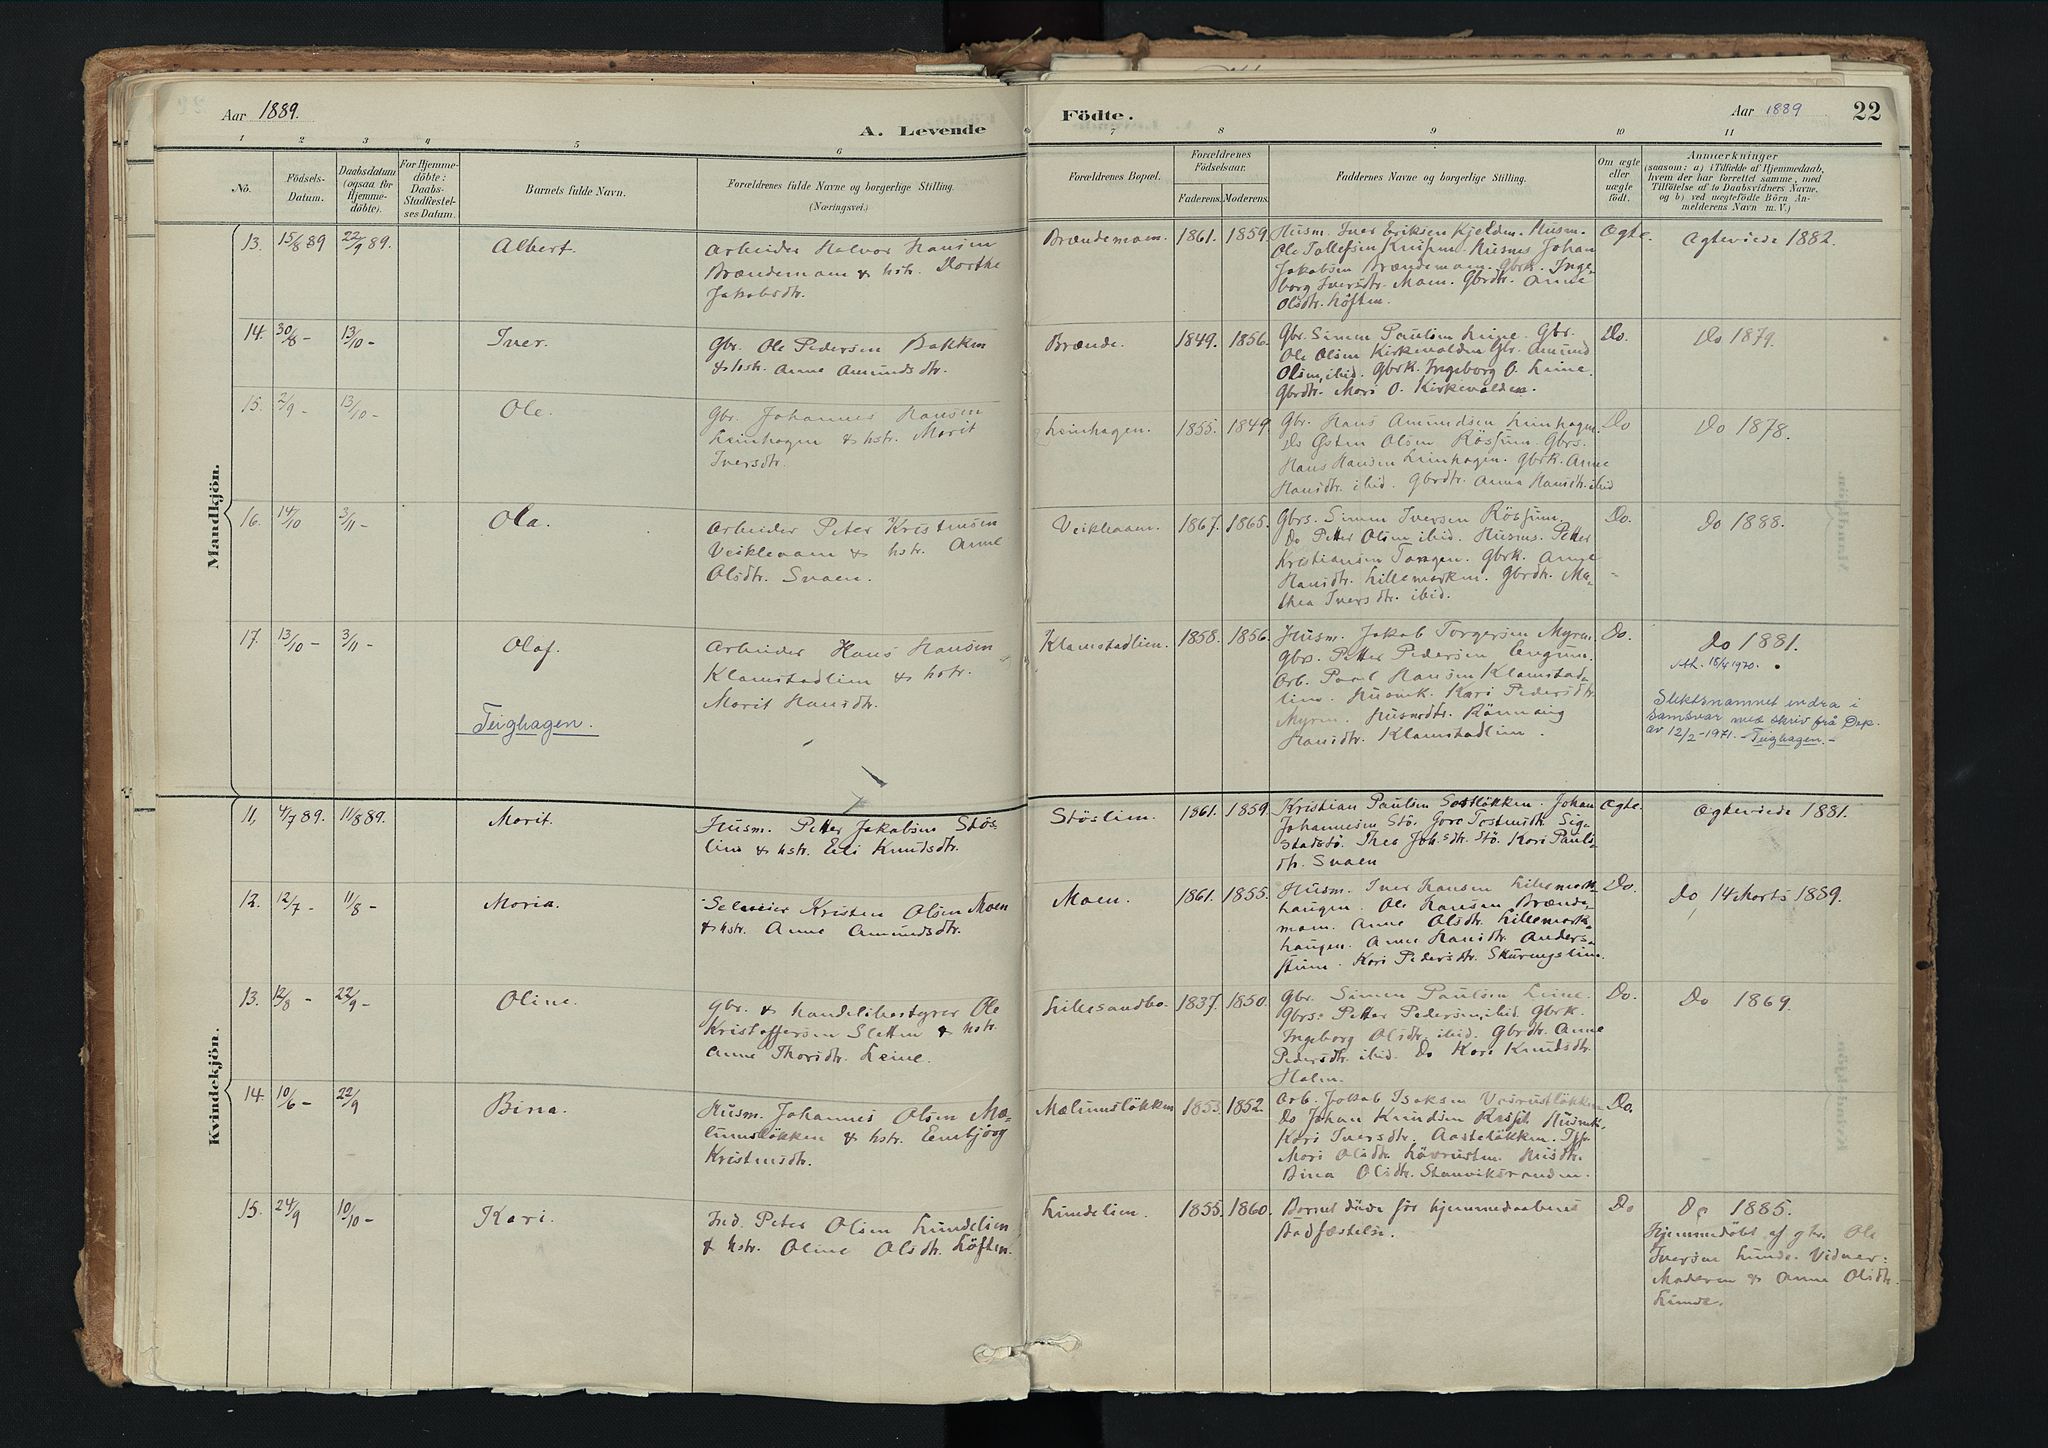 Aar 1889.
A. Levende
Födte.
Aar 1889
22
1 2 3 4 5 6 7 8 9 10 11
No.
Födsels-
Datum.
Daabsdatum
(ogsaa for
Hjemme-
döbte).
For Hjemme-
döbte:
Daabs-
Stadfæstel-
ses Datum.
Barnets fulde Navn.
Forældrenes fulde Navne og borgerlige Stilling.
(Næringsvei.)
Forældrenes Bopæl.
Forældrenes
Födselsaar.
Faderens. Moderens.
Faddernes Navne og borgerlige Stilling.
Om ægte
eller
uægte
födt.
Anmærkninger
(saasom: a) i Tilfælde af Hjemmedaab,
hvem der har forrettet samme, med
Tilföielse af to Daabsvidners Navne,
og b) ved uægtefödte Börn An-
melderens Navn m. V.)
Mandkjön.
13. 15/8 89 22/9 89. Albert.
Arbeider Halvor Hansen
Brændemoen & hstr. Dorthe
Jakobsdtr.
Brændemoen. 1861. 1859.
Husm. Iver Eriksen Kjelden. Husm.
Ole Tollefsen Husms. Johan
Jakobsen Brændemoen. Gbrk. Inge-
borg Iversdtr. Moen. Gbrdtr. Anne
Olsdtr. Löften.
Ægte. Ægteviede 1882.
14. 30/8 - 13/10 - Iver.
Gbr. Ole Pedersen Bakken
& hstr. Anne Amundsdtr.
Brænde. 1849. 1856.
Gbr. Simen Paulsen Leine. Gbr.
Ole Olsen Kirkevolden Gbr. Amund
Olsen, ibid. Gbrk. Ingeborg O. Leine.
Gbrdtr. Mari O. Kirkevolden.
Do. Do 1879.
15. 2/9 - 13/10 - Ole.
Gbr. Johannes Hansen
Leinhagen & hstr. Marit
Iversdtr.
Leinhagen. 1855. 1849.
Gbr. Hans Amundsen Leinhagen.
Do Østen Olsen Rösum. Gbrs.
Hans Hansen Leinhagen. Gbrk. Anne
Hansdtr. ibid. Gbrdtr. Anna Hansdtr. ibid
Do Do 1878.
16. 14/10 3/11 - Ola.
Arbeider Peter Kristensen
Veikleaaen & hstr. Anne
Olsdtr. Svaen.
Veikleaaen. 1867. 1865.
Gbrs. Simen Iversen Rösum.
Do Petter Olsen ibid. Husms. Petter
Kristiansen Gbrk. Anne
Hansdtr. Lillemorken. Gbrdtr. Ma-
thea Iversdtr. ibid.
Do. Do 1888.
17. 13/10 - 3/11 - Olaf.
Teighagen.
Arbeider Hans Hansen
Klamstadlien & hstr.
Marit Hansdtr.
Klamstadlien. 1858. 1856.
Husm. Jakob Torgersen Myren
Gbr. Petter Pedersen
Arb. Paul Hansen Klamstad-
lien. Husmk. Kari Pedersdtr.
Myren. Husmdtr. Rönnaug
Hansdtr. Klamstadlien.
Do. Do 1881.
Att. 15/4 1970.
Slektsnamnet endra i
samsvar med skriv frå Dep.
av 12/2-1971. - Teighagen. -
Kvindekjön.
11. 4/7 89. 11/8 89. Marit.
Husm. Petter Jakobsen Stös-
lien & hstr. Eli Knudsdtr.
Stöslien. 1861. 1859.
Kristian Paulsen Johan
Johannesen Stö. Goro Sig-
stadstö. Thea Johsdtr. Stö. Kari Pauls-
dtr. Svaen
Ægte. Ægteviede 1881.
12. 12/7 - 11/8 - Maria.
Selveier Kristen Olsen Moen
& hstr. Anne Amundsdtr.
Moen. 1861. 1855.
Husm. Iver Hansen Lillemork-
haugen. Ole Hansen Brænde-
moen. Anne Olsdtr. Lillemork-
haugen. Anne Hansdtr. Anders-
stuen. Kari Pedersdtr. Skuringslien.
Do. Do, 14 Marts 1889.
13. 12/8 - 22/9 - Oline.
Gbr. & Handelsbestyrer Ole
Kristoffersen Sletten & hstr.
Anne Thorsdtr. Leine.
Lillesandbo. 1837. 1850.
Gbr. Simen Paulsen Leine.
Gbrs: Petter Pedersen, ibid. Gbrk.
Ingeborg Olsdtr. ibid. Gbrdtr. Anne
Pedersdtr. ibid. Do Kari Knudsdtr.
Holm.
Do. Do 1869.
14. 10/6 - 22/9 Bina.
Husm. Johannes Olsen Mæ-
lumslökken & hstr. Embjörg
Kristensdtr.
Mælumslökken 1853. 1852.
Arb. Jakob Isaksen
Do Johan Knudsen Husmk.
Kari Iversdtr.
Mari Olsdtr.
Bina Olsdtr.
Do.
15. 24/9 10/10 - Kari.
Ind. Peter Olsen Lundelien
& hstr. Oline Olsdtr. Löften.
Lundelien. 1855. 1860.
Barnet döde för hjemmedaabens
Stadfæstelse.
Do Do 1885.
Hjemmedöbt af gbr. Ole
Iversen Lunde. Vidner:
Moderen & Anne Olsdtr.
Lunde.